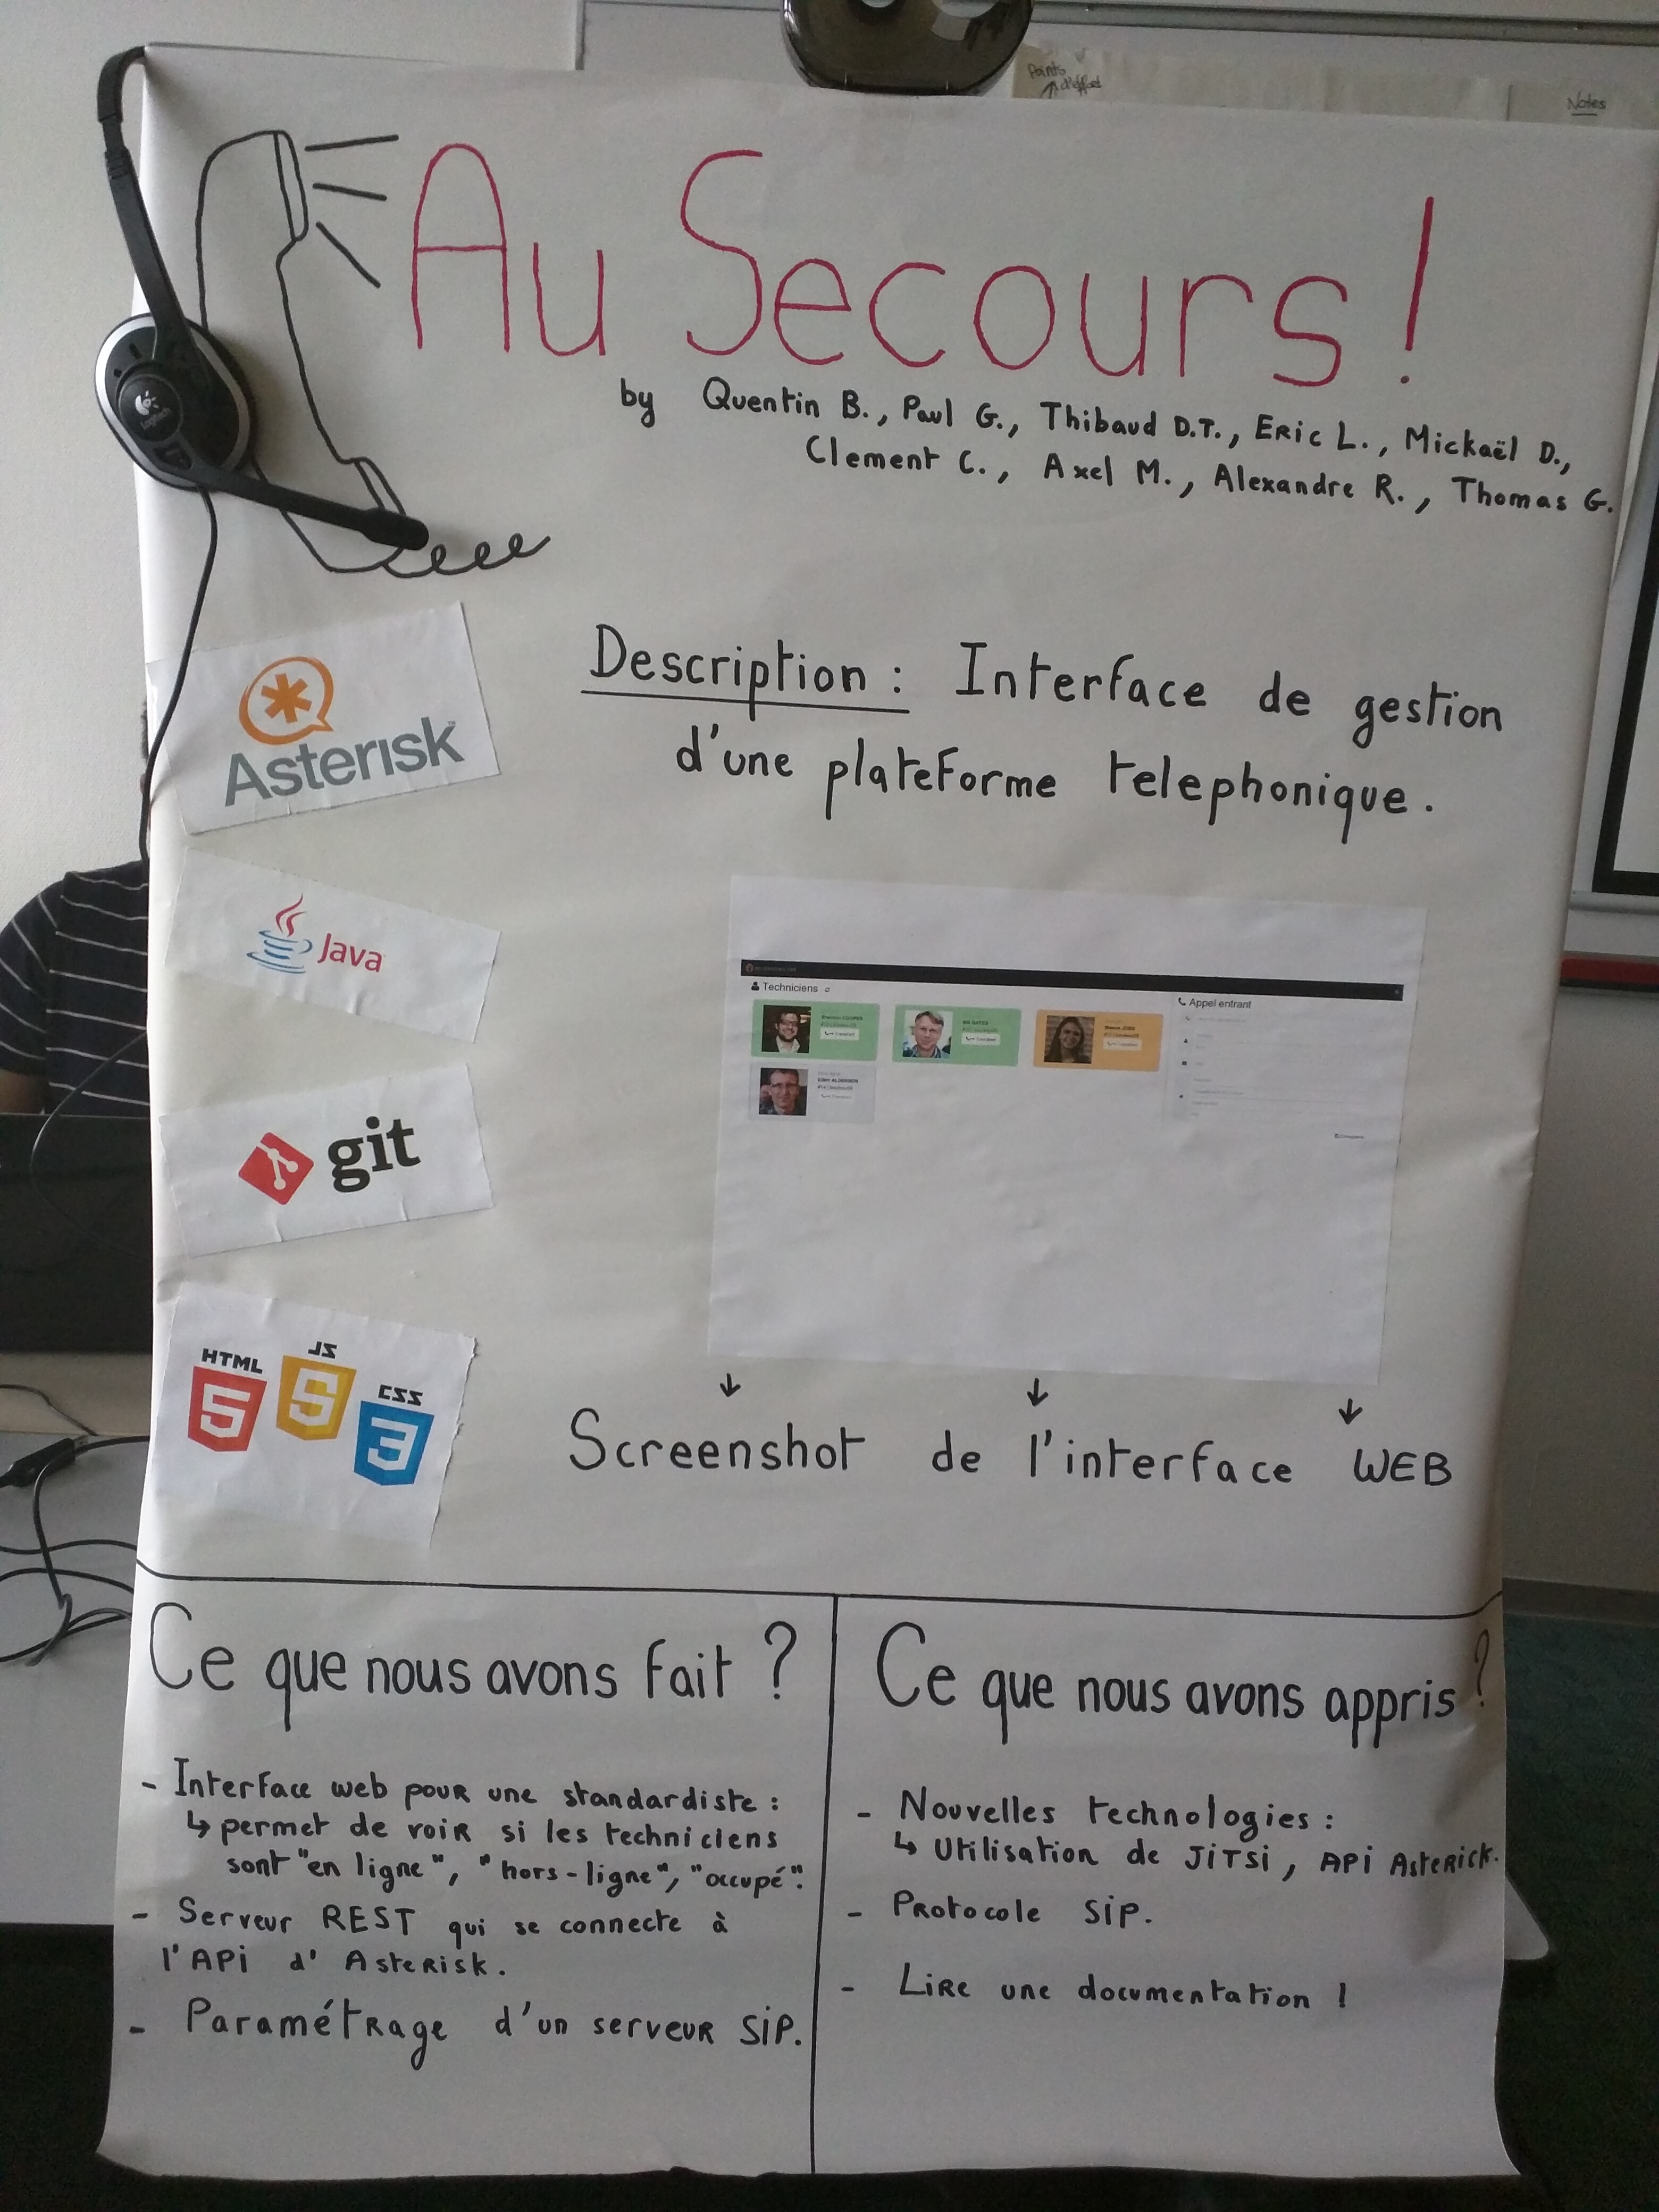 Points
d'effort
Notes
Au Secours!
by Quentin B., Paul G., Thibaud D.T., Eric L., Mickaël D.,
Clement C., Axel M., Alexandre R., Thomas G.
Logitech
Asterisk
Description: Interface de gestion
d'une plateforme telephonique.
Java
Techniciens
Appel entrant
git
HTML
JS
CSS
5
5
3
Screenshot de l'interface WEB
Ce que nous avons fait ?
- Interface web pour une standardiste :
↳ permet de voir si les techniciens
sont "en ligne", "hors-ligne", "occupé".
- Serveur REST qui se connecte à
l'API d'Asterisk.
- Paramétrage d'un serveur SIP.
Ce que nous avons appris ?
- Nouvelles technologies :
↳ Utilisation de JiTSi, API Asterick.
- Protocole SIP.
- Lire une documentation !